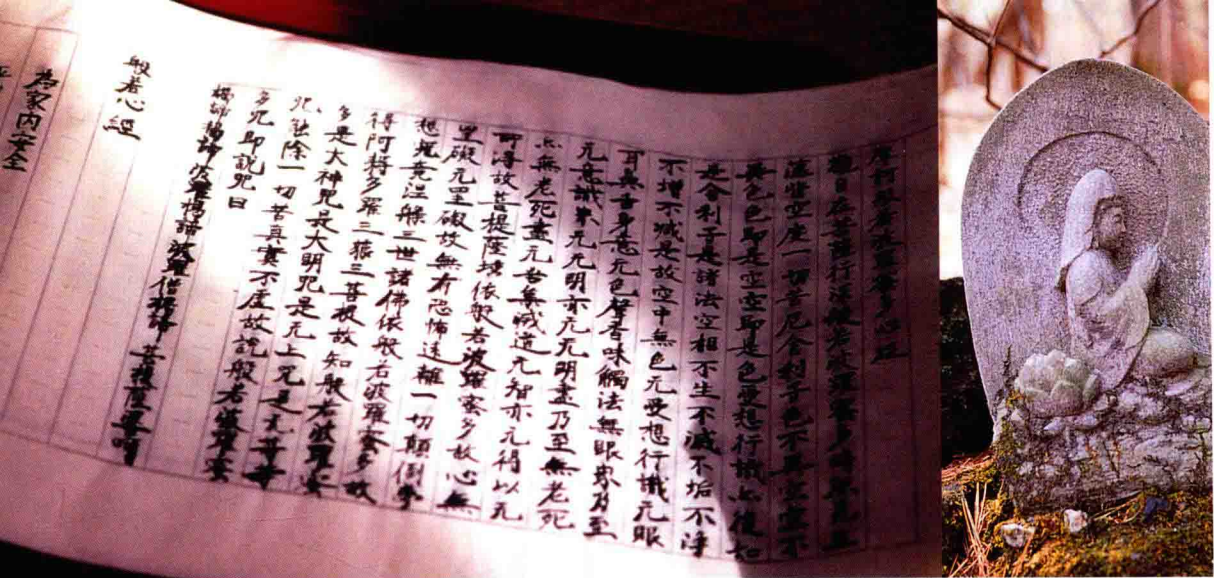 摩訶般若波羅蜜多心經
觀自在菩薩行深般若波羅蜜多時照見五
蘊皆空度一切苦厄舍利子色不異空空不
異色色即是空空即是色受想行識亦復如
是舍利子是諸法空相不生不滅不垢不淨
不增不減是故空中無色无受想行識无眼
耳鼻舌身意无色聲香味觸法無眼界乃至
无意識界无无明亦无无明盡乃至無老死
亦無老死盡无苦集滅道无智亦无得以无
所得故菩提薩埵依般若波羅蜜多故心無
罣礙无罣礙故無有恐怖遠離一切顛倒夢
想究竟涅槃三世諸佛依般若波羅蜜多故
得阿耨多羅三藐三菩提故知般若波羅蜜
多是大神咒是大明咒是无上咒是无等等
咒能除一切苦真實不虛故說般若波羅蜜
多咒即說咒曰
揭諦揭諦波羅揭諦波羅僧揭諦菩提薩婆訶
般若心經
為家内安全